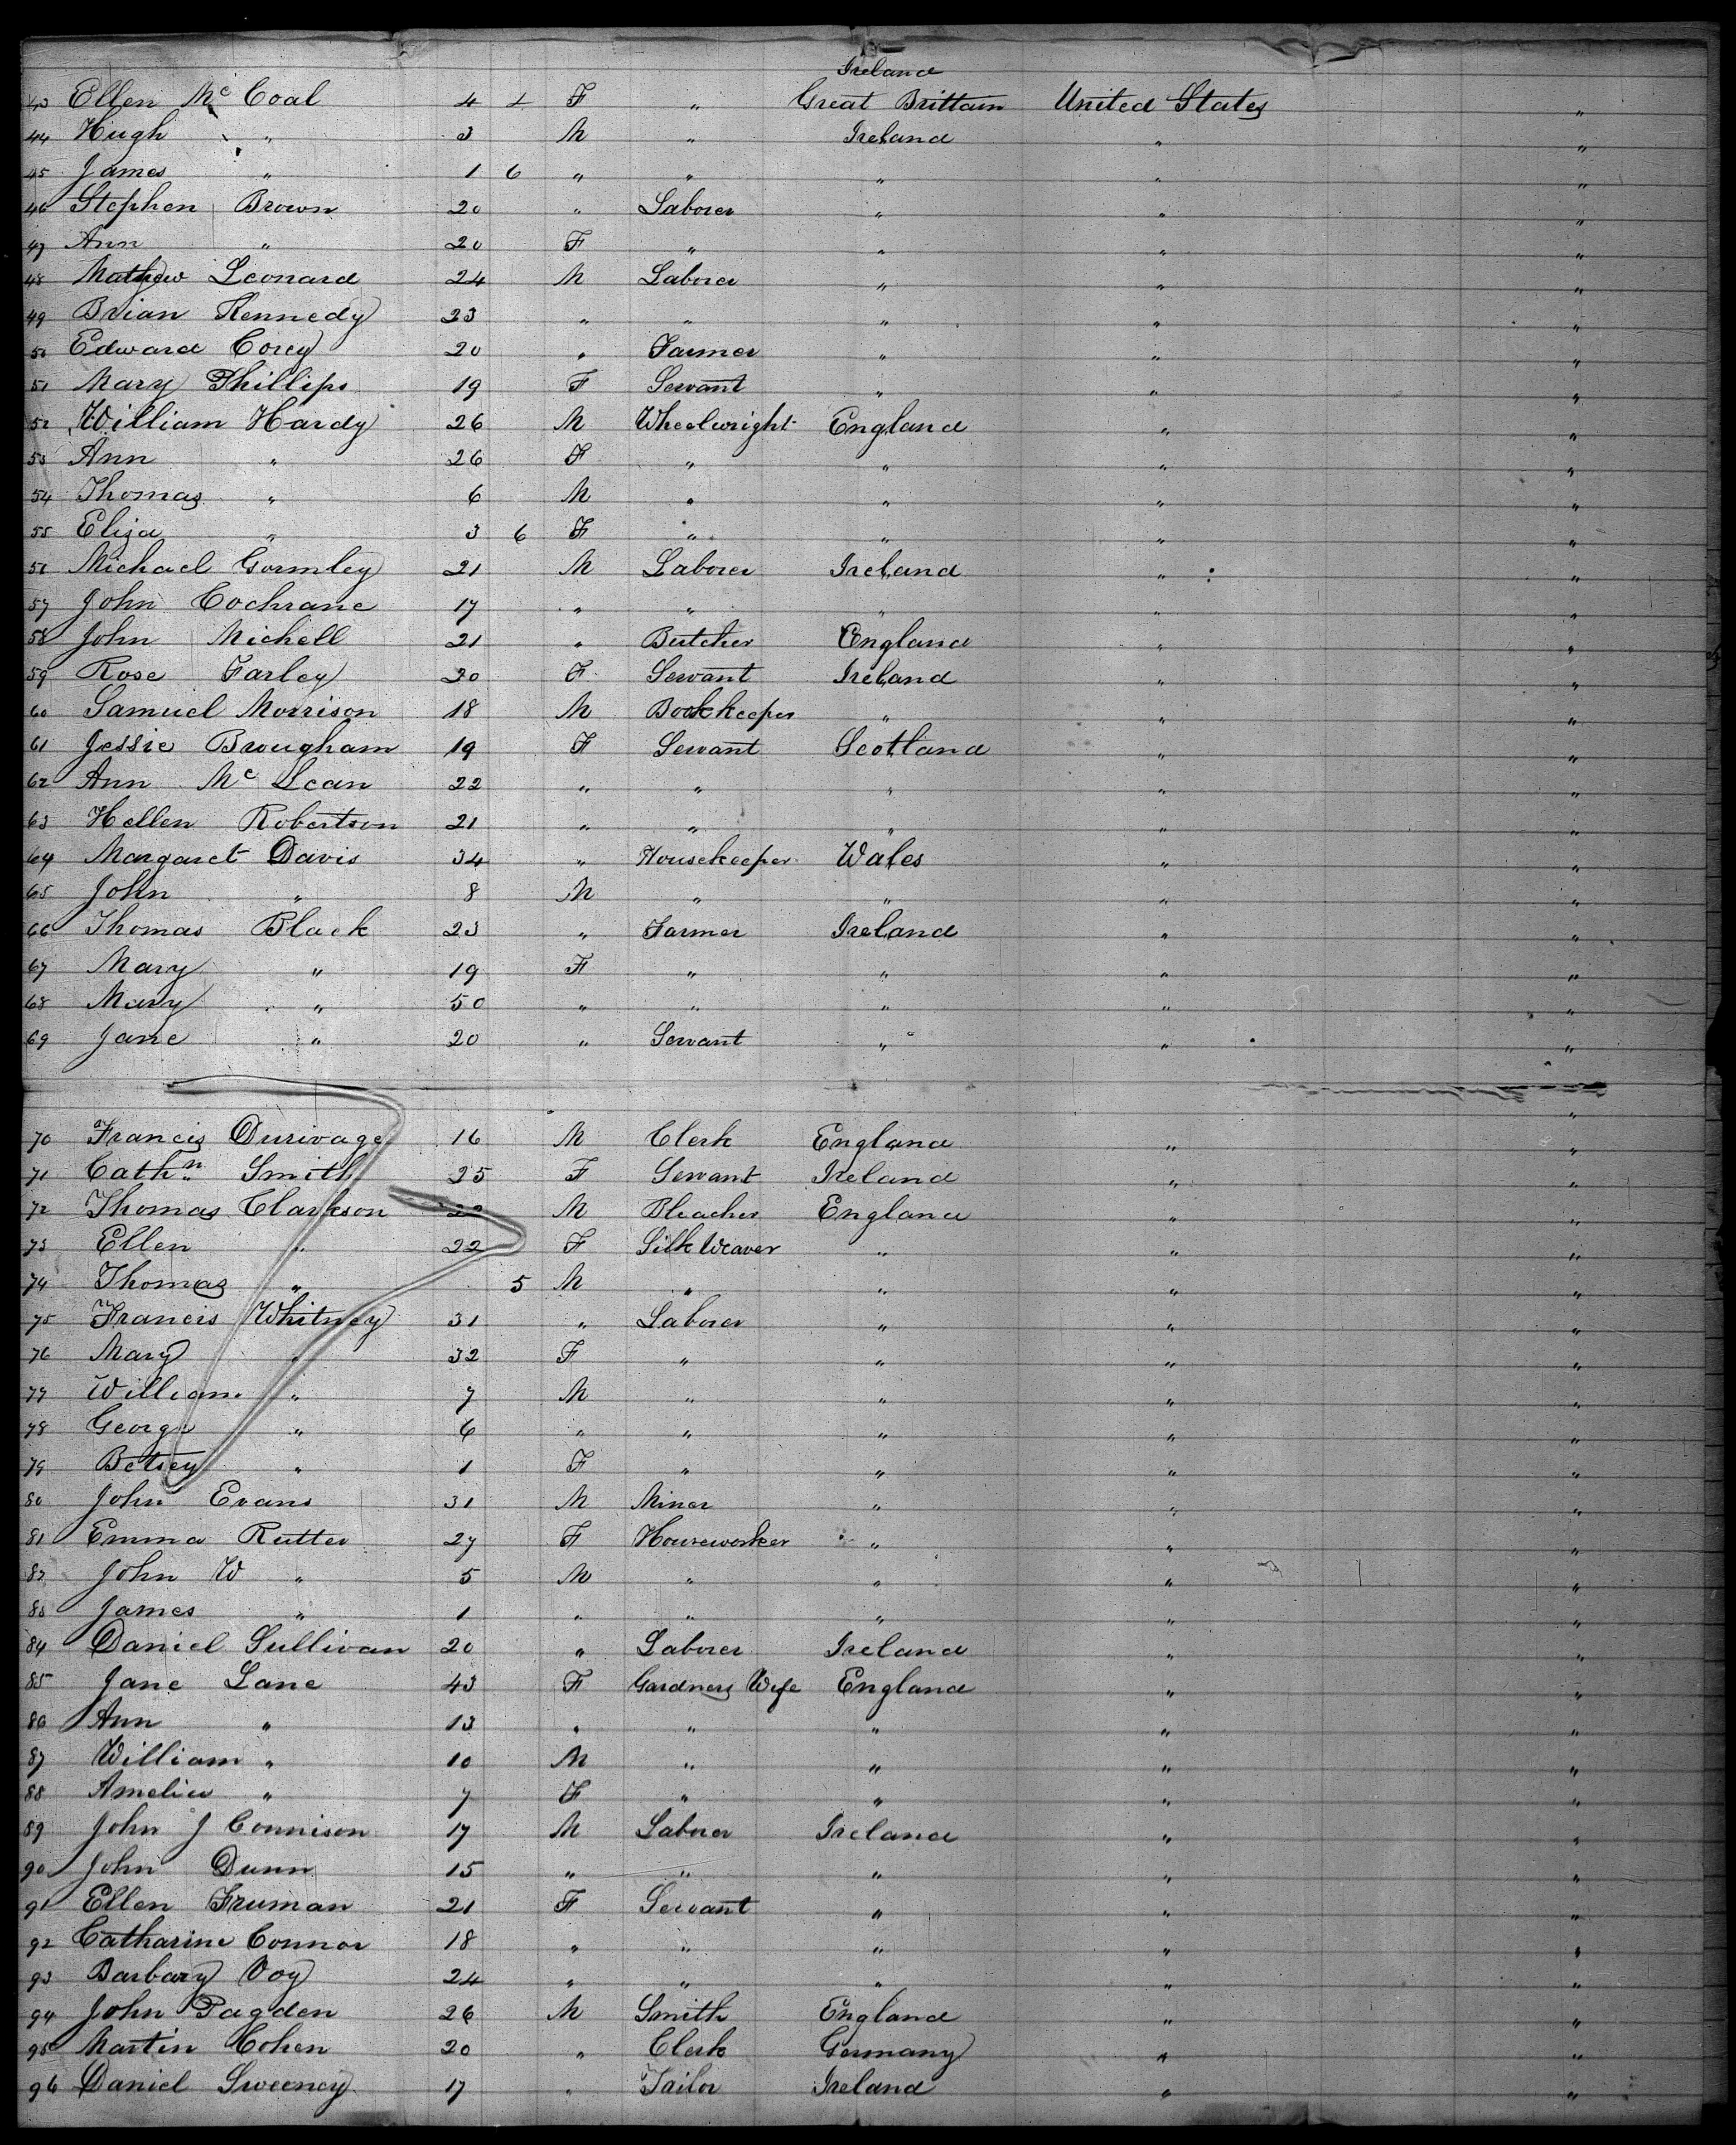 Ireland
43 Ellen Mc Coal 4 F " Great Brittain United States "
44 Hugh " 3 M " Ireland " "
45 James " 1 6 " " " " "
46 Stephen Brown 20 " Laborer " " "
47 Ann " 20 F " " " "
48 Mathew Leonard 24 M Laborer " " "
49 Brian Kennedy 23 " " " " "
50 Edward Corey 20 " Farmer " " "
51 Mary Phillips 19 F Servant " " "
52 William Hardy 26 M Wheelwright England " "
53 Ann " 26 F " " " "
54 Thomas " 6 M " " " "
55 Eliza " 3 6 F " " " "
56 Michael Gormley 21 M Laborer Ireland " "
57 John Cochrane 17 " " " " "
58 John Michell 21 " Butcher England " "
59 Rose Farley 20 F Servant Ireland " "
60 Samuel Morrison 18 M Bookkeeper " " "
61 Jessie Brougham 19 F Servant Scotland " "
62 Ann Mc Lean 22 " " " " "
63 Hellen Robertson 21 " " " " "
64 Margaret Davis 34 " Housekeeper Wales " "
65 John " 8 M " " " "
66 Thomas Black 23 " Farmer Ireland " "
67 Mary " 19 F " " " "
68 Mary " 50 " " " " "
69 Jane " 20 " Servant " " "
"
70 Francis Durivage 16 M Clerk England " "
71 Cathn Smith 25 F Servant Ireland " "
72 Thomas Clarkson 22 M Bleacher England " "
73 Ellen " 22 F Silk Weaver " " "
74 Thomas " 5 M " " " "
75 Francis Whitney 31 " Laborer " " "
76 Mary " 32 F " " " "
77 William " 7 M " " " "
78 George " 6 " " " " "
79 Betsey " 1 F " " " "
80 John Evans 31 M Miner " " "
81 Emma Rutter 27 F Houseworker " " "
82 John W " 5 M " " " "
83 James " 1 " " " " "
84 Daniel Sullivan 20 " Laborer Ireland " "
85 Jane Lane 43 F Gardners Wife England " "
86 Ann " 13 " " " " "
87 William " 10 M " " " "
88 Amelia " 7 F " " " "
89 John J Connison 17 M Laborer Ireland " "
90 John Dunn 15 " " " " "
91 Ellen Fruman 21 F Servant " " "
92 Catharine Connor 18 " " " " "
93 Barbary 24 " " " " "
94 John Pagden 26 M Smith England " "
95 Martin Cohen 20 " Clerk Germany " "
96 Daniel Sweeney 17 " Tailor Ireland " "